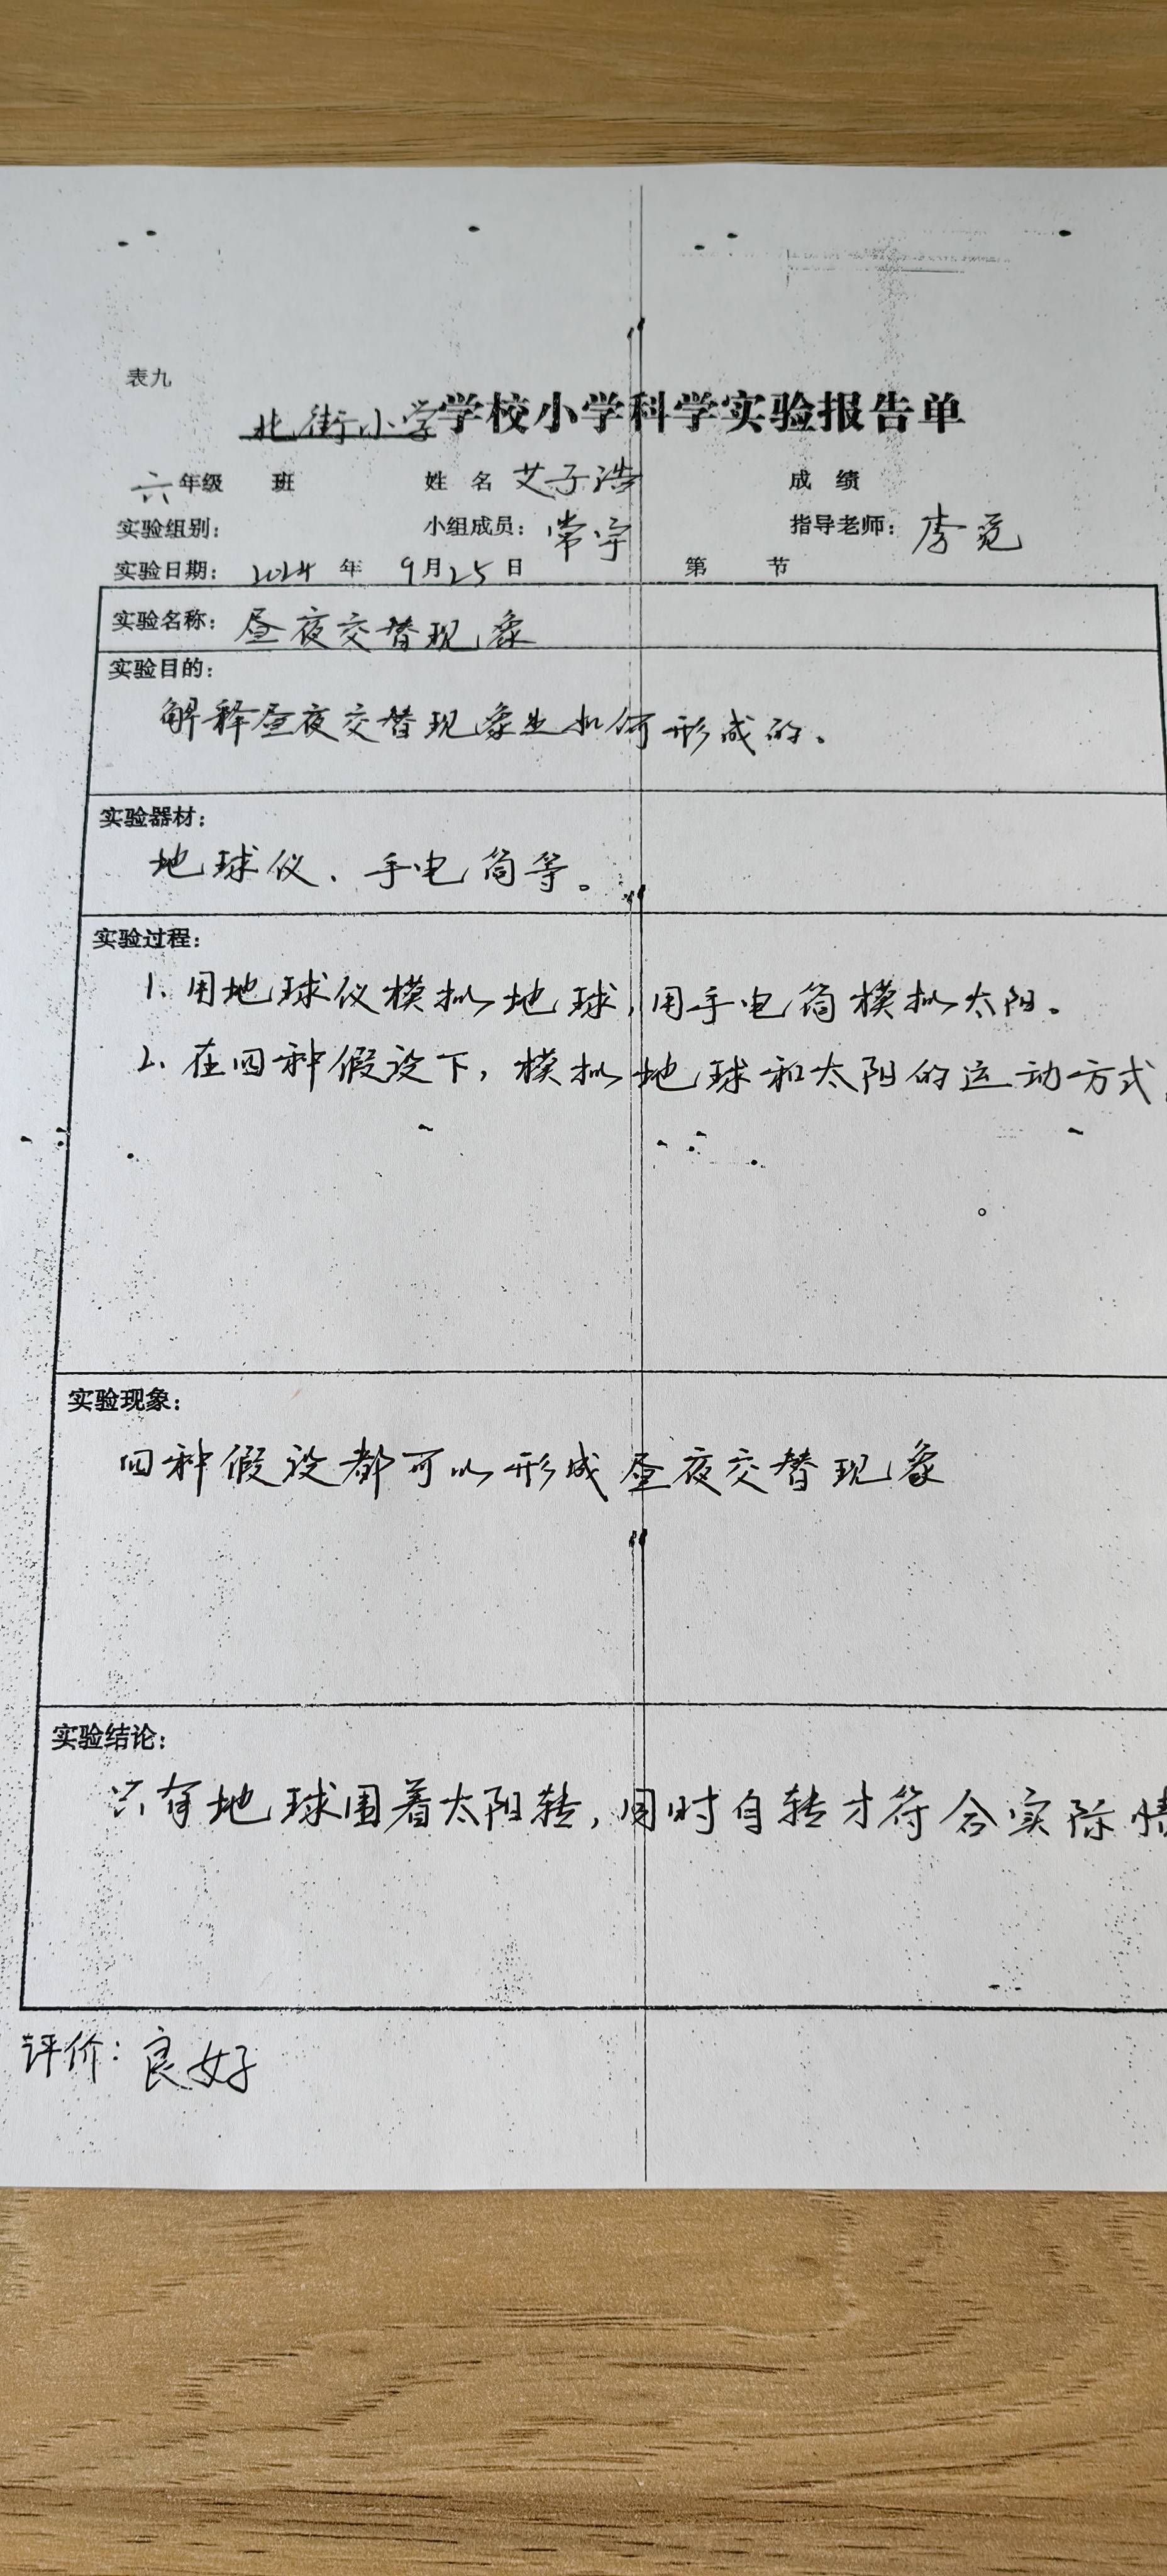 表九
北街小学学校小学科学实验报告单
六年级 班 姓名 艾子浩 成绩
实验组别: 小组成员: 常宇 指导老师: 李
实验日期: 2024 年 9月25日 第 节
实验名称: 昼夜交替现象
实验目的:
解释昼夜交替现象是如何形成的。
实验器材:
地球仪、手电筒等。
实验过程:
1.用地球仪模拟地球,用手电筒模拟太阳。
2.在四种假设下,模拟地球和太阳的运动方式
实验现象:
四种假设都可以形成昼夜交替现象
实验结论:
只有地球围着太阳转,同时自转才符合实际情
评价:良好